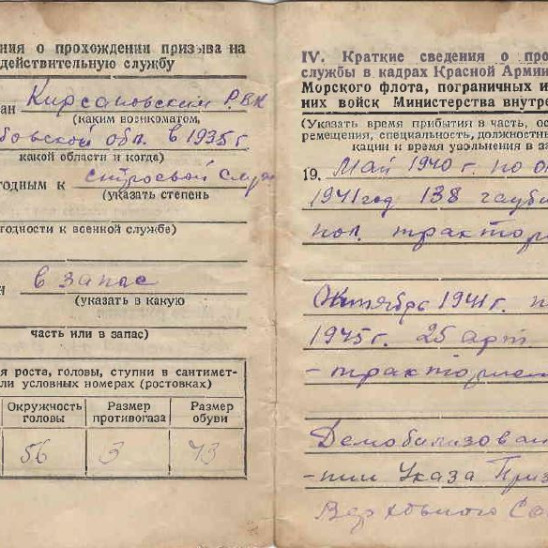 ния о прохождении призыва на
действительную службу
ан Кирсановским РВК
(каким военкоматом,
бовской обл. в 1935 г
какой области и когда)
годным к строевой
(указать степень
годности к военной службе)
н в запас
(указать в какую
часть или в запас)
я роста, головы, ступни в сантимет-
ли условных номерах (ростовках)
Окружность головы
Размер противогаза
Размер обуви
56 3 43
IV. Краткие сведения о про
службы в кадрах Красной Армии
Морского флота, пограничных и
них войск Министерства внутр
(Указать время прибытия в часть, ос
ремещения, специальность, должностн
кации и время увольнения в за
19. Май 1940 г. по ок
1941 год 138 гауби
пол. трактори
Октябрь 1941 г. п
1945 г. 25 арт
- тракторист
Демобилизован
-нии Указа През
Верховного Со